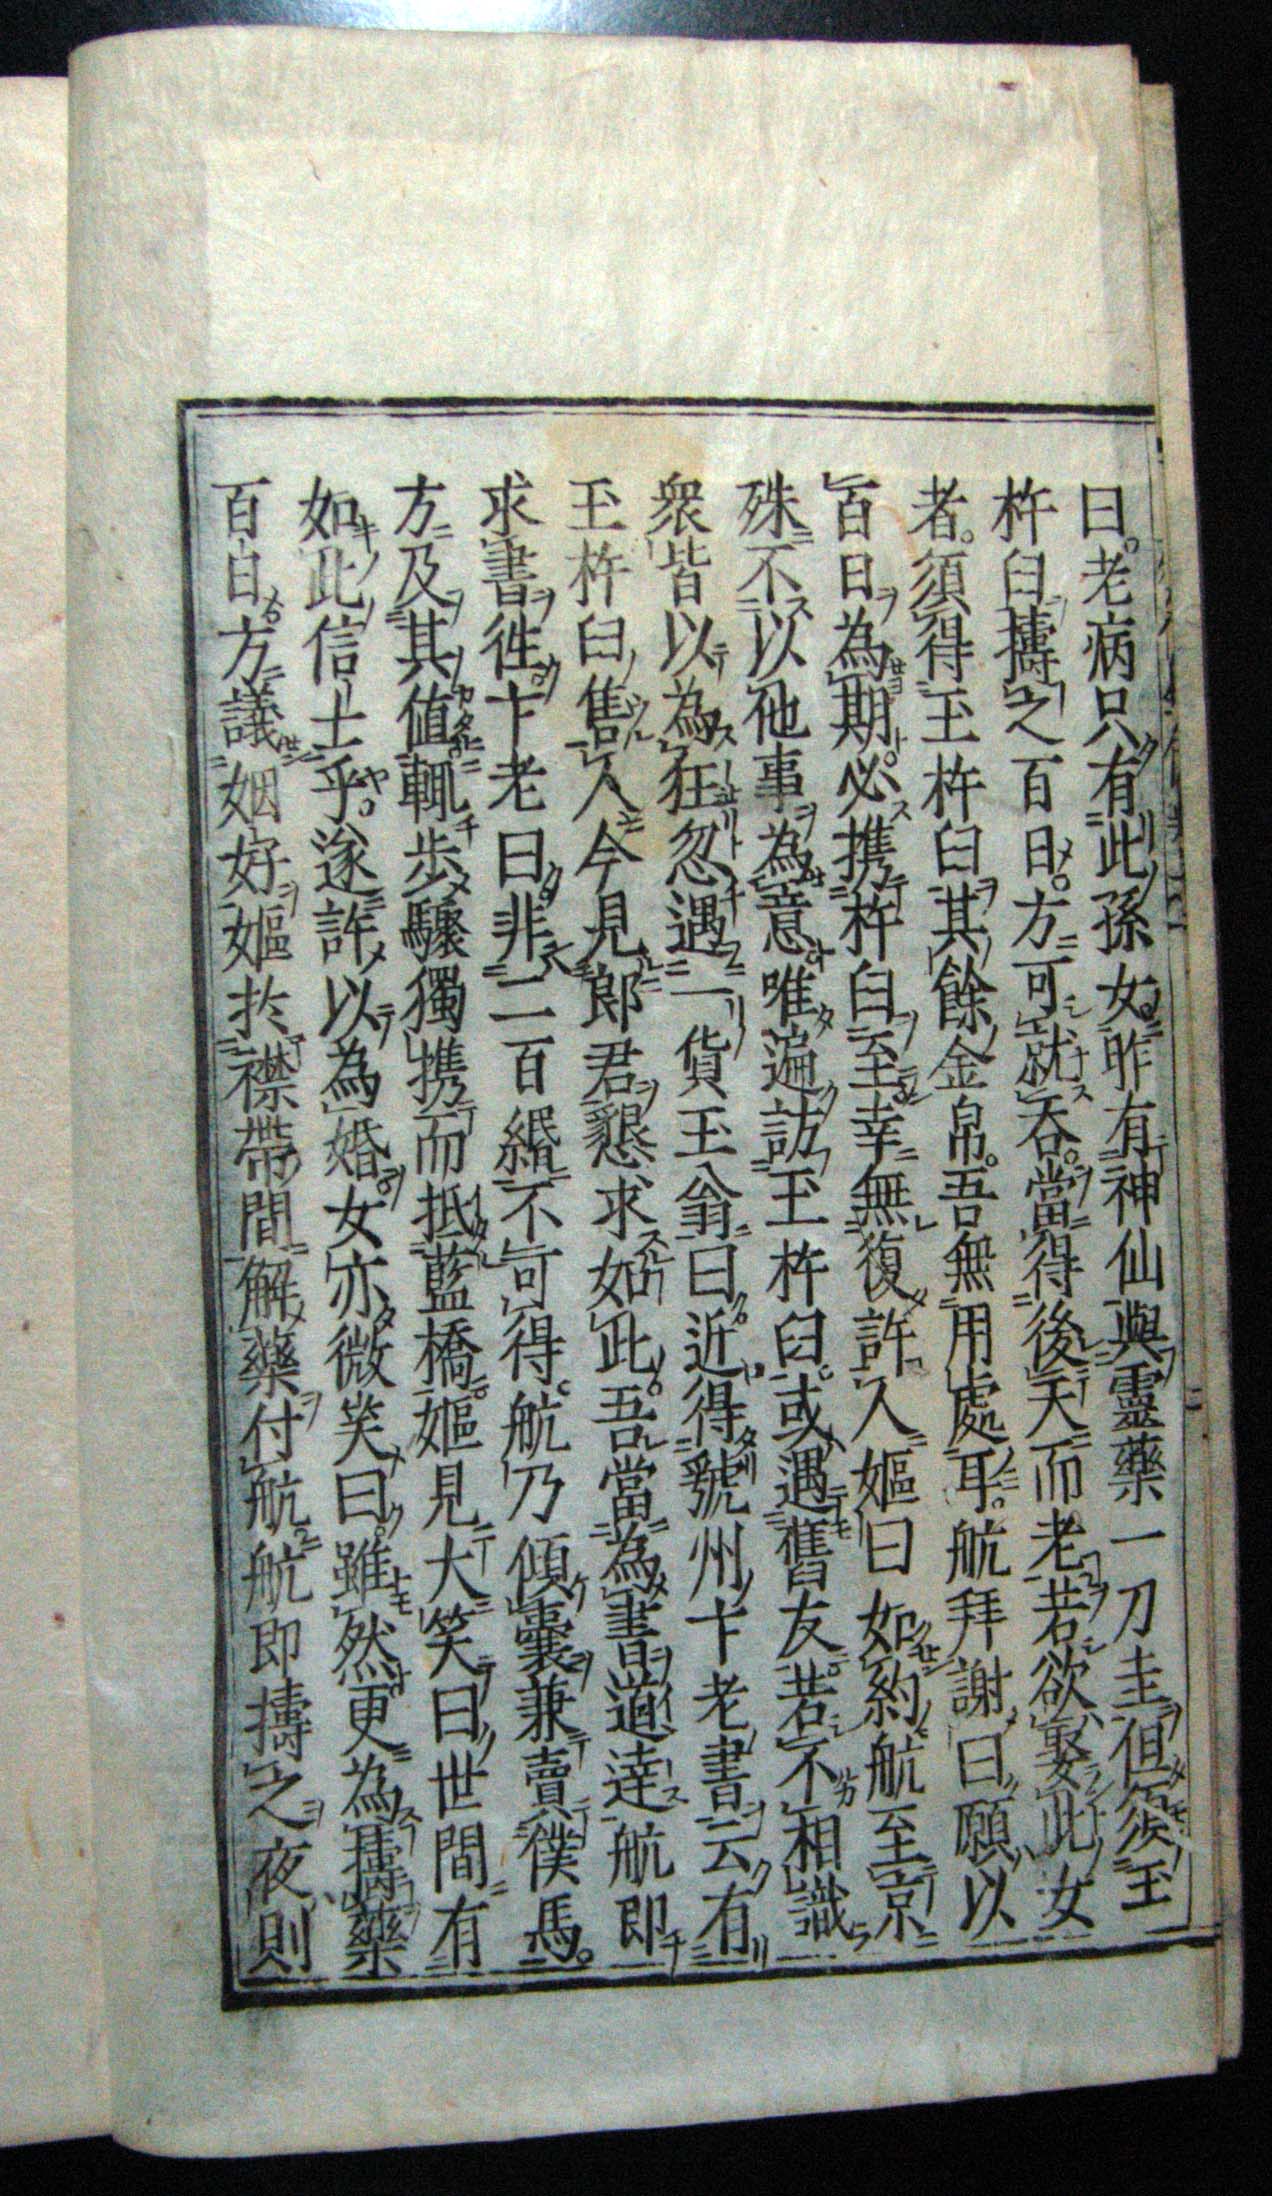 曰老病只有此孫女昨有神仙與靈藥一刀圭但須玉
杵臼擣之百日方可就吞當得後天而老若欲娶此女
者須得玉杵臼其餘金帛吾無用處耳航拜謝曰願以
百日為期必携杵臼至幸無復許人嫗曰如約航至京
殊不以他事為意唯遍訪玉杵臼或遇舊友若不相識
衆皆以為狂忽遇一貨玉翁曰近得虢州卞老書云有
玉杵臼售人今見郎君懇求如此吾當為書道達航即
求書徃卞老曰非二百緡不可得航乃傾囊兼賣僕馬
方及其値輒步驟獨携而抵藍橋嫗見大笑曰世間有
如此信士乎遂許以為婚女亦微笑曰雖然更為擣藥
百日方議姻好嫗於襟帶間解藥付航航即擣之夜則